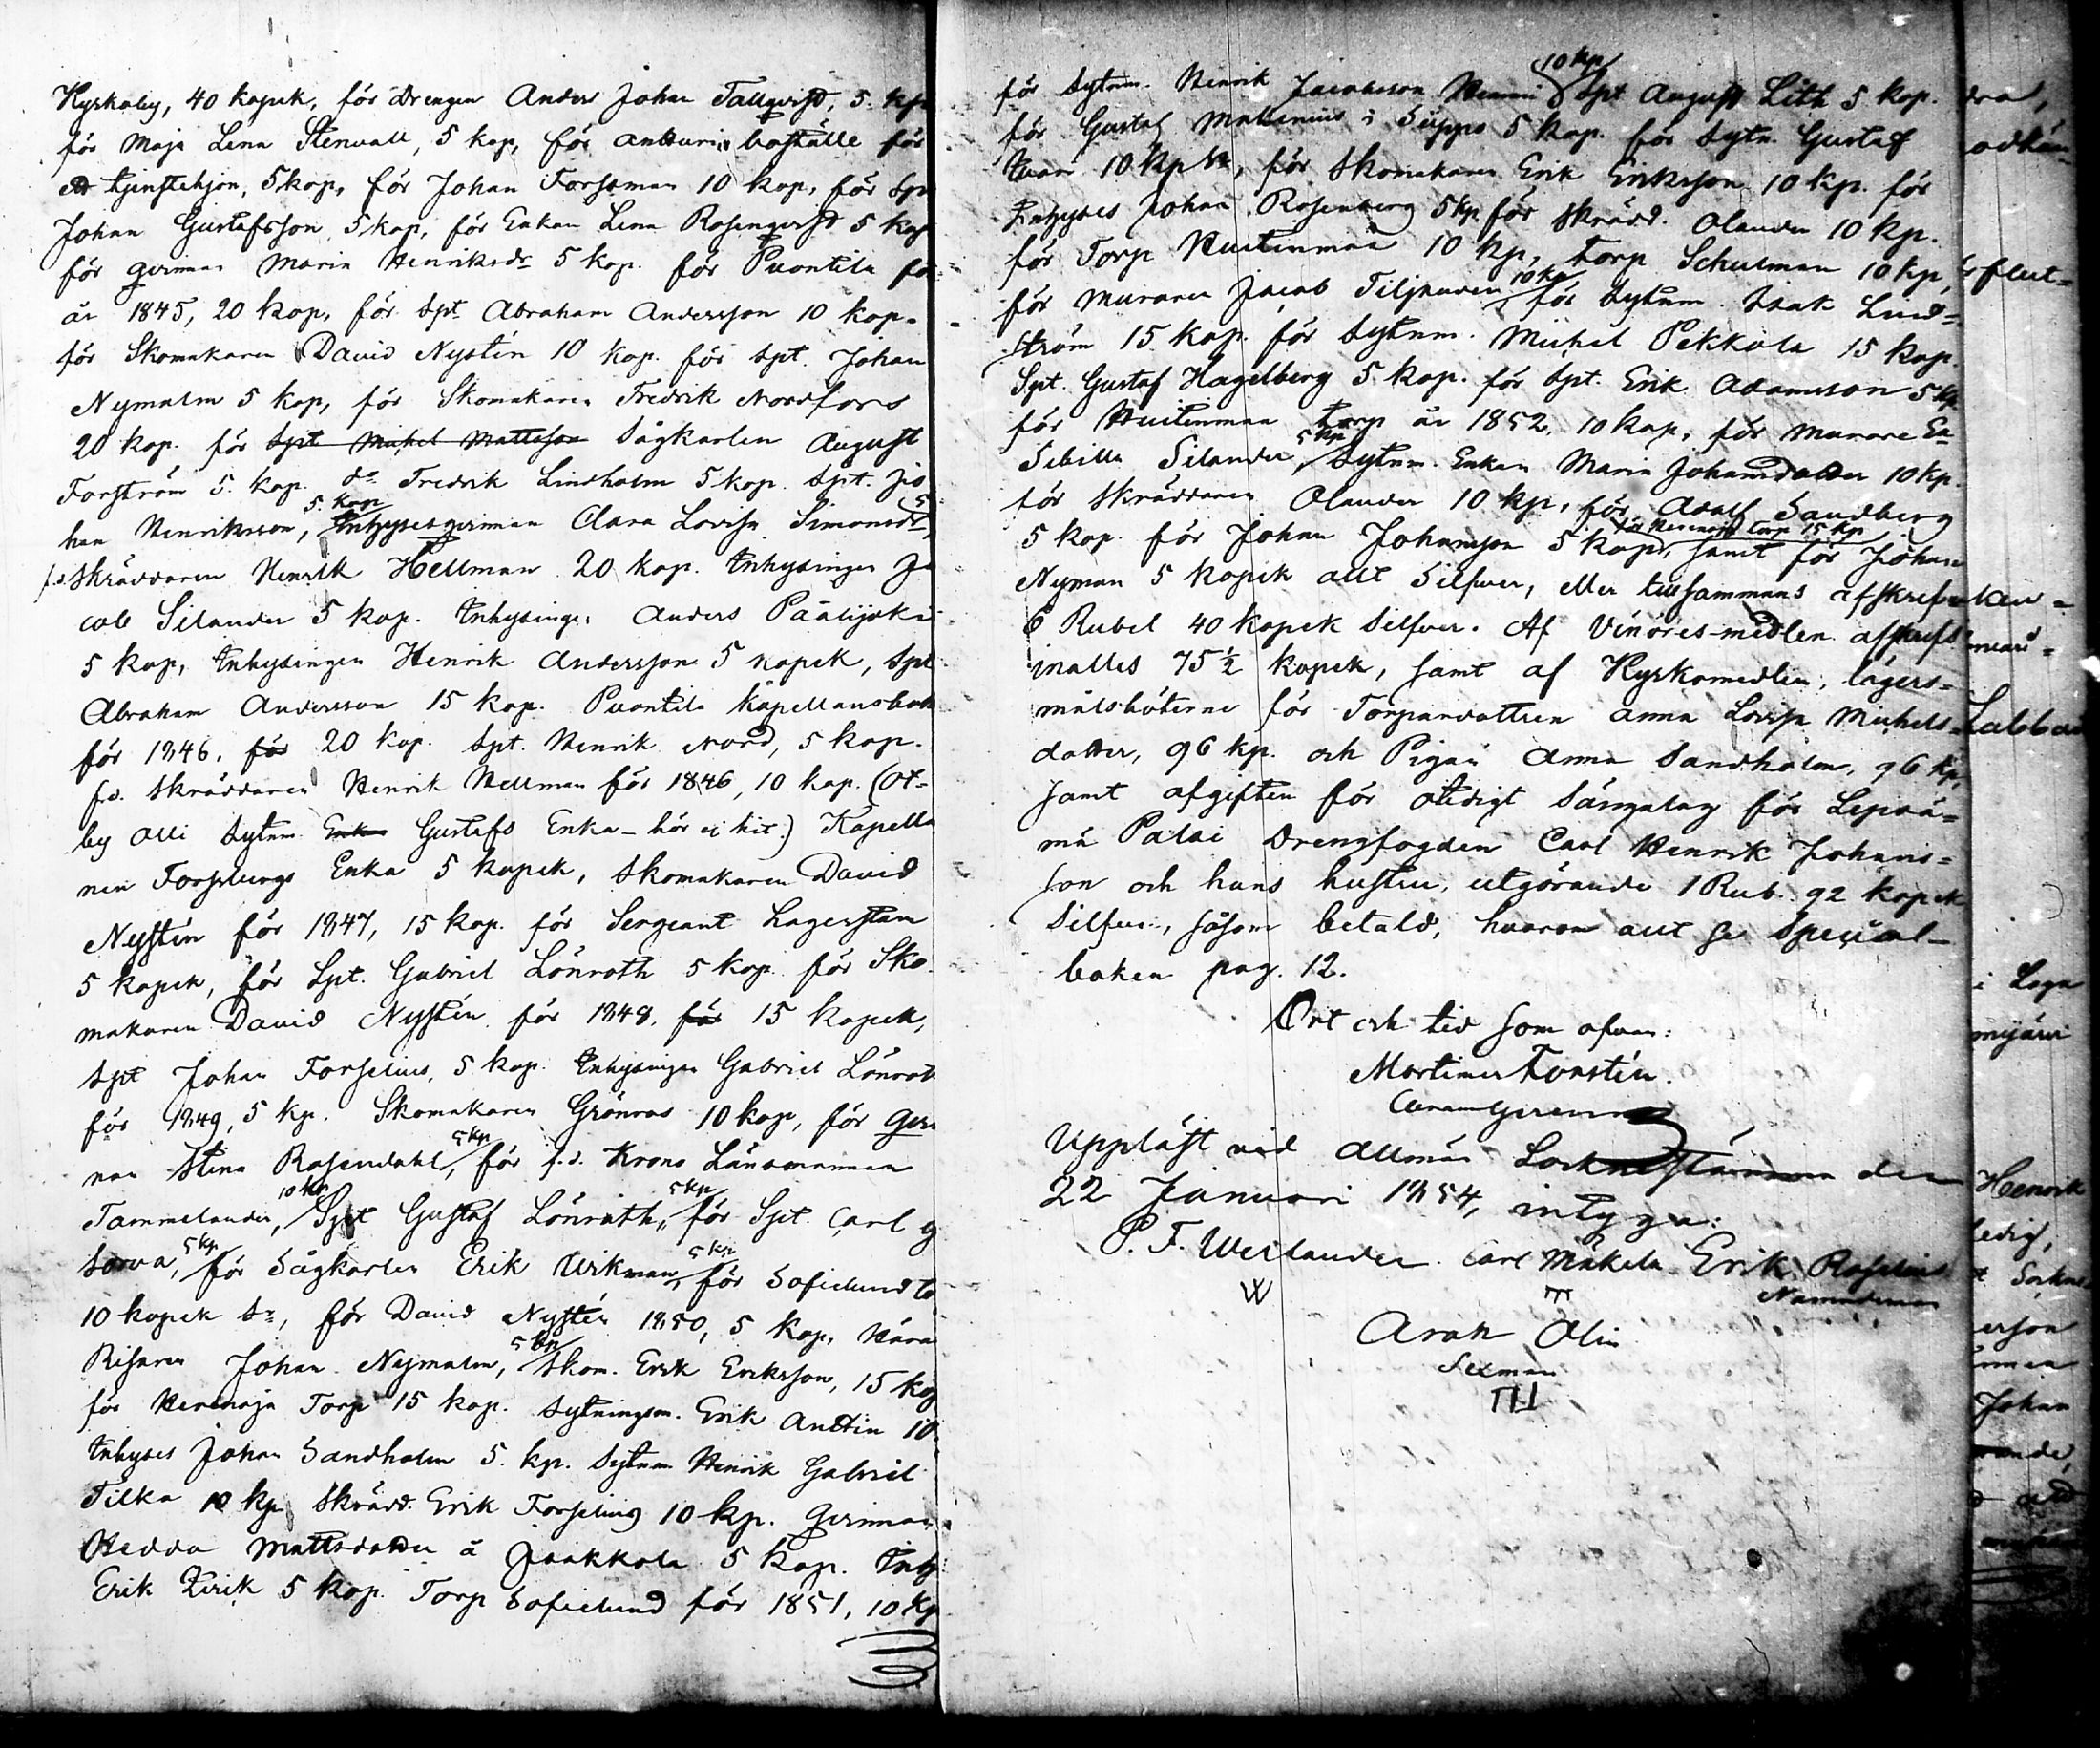 Kyrkoby, 40 kopek, för Drengen Anders Johan Tallqvist, 5 kop
för Maja Lena Stenvall, 5 kop, för Antturin boställe för
Johan Forssman 10 kop, för Spt
Johan Gustafsson 5 kop, för Enkan Lena Rosenqvist 5 kop
för qvinnan Maria Henriksdr 5 kop. för Puontila för
år 1845, 20 kop, för Spt. Abraham Andersson 10 kop.
för Skomakaren David Nystén 10 kop. för Spt. Johan
Nymalm 5 kop, för Skomakaren Fredrik Nordfors
20 kop. för Spt Mickel Mattsson Sågkarlen August
Forström 5 kop. do Fredrik Lindholm 5 kop. Spt. Jo
han Henriksson, 5 kop Inhyses qvinnan Clara Lovisa Simonsdr, 5
f.d. Skräddaren Henrik Hellman 20 kop. Inhysingen Ja
cob Silander 5 kop. Inhysingen Anders Päälijoki
5 kop, Inhysingen Henrik Andersson 5 kopek, Spt
Abraham Andersson 15 kop. Puontila Kapellansbol
för 1846, för 20 kop. Spt. Henrik Nord, 5 kop.
f.d. Skräddaren Henrik Hellman för 1846, 10 kop. (Ot-
by Olli Sytnm. Enka Gustafs Enka - hör ej hit.) Kapella
nen Forsbergs Enka 5 kopek, Skomakaren David
Nystén för 1847, 15 kop. för Sergeant Lagerstam
5 kopek, för Spt. Gabriel Lönroth 5 kop. för Sko
makaren David Nystén för 1848, för 15 kopek,
Spt Johan Forselius, 5 kop. Inhysingen Gabriel Lönrot
för 1849, 5 kp. Skomakaren Grönros 10 kop, för Qvin
nan Stina Rosendahl, 5 kp för f.d. Krono Länsmannen
Tammelander, 10 kp Spt Gustaf Lönroth, 5 kp för Spt. Carl G
Sorva, 5 kp för Sågkarlen Erik Wikman, 5 kp för Sofielund to
10 kopek Sr, för David Nystén 1850, 5 kop,
Johan Nymalm, 5 kp Skom. Erik Eriksson, 15 kop
för Heremaja Torp 15 kop. Sytningsm. Erik Anttin 10
Inhyses Johan Sandholm 5 kp. Sytnm Henrik Gabriel
Tilka 10 kp Skrädd. Erik Forselius 10 kp. Qvinnan
Hedda Mattsdotter å Jaakkola 5 kop. Inhy
Erik Kirik 5 kop. Torp Sofielund för 1851, 10 kp
för Sytnm. Henrik Jacobsson Hemmi 10 kp Spt August Lith 5 kop.
för Gustaf Mattenius i Seippo 5 kop. för Sytn. Gustaf
Ivan 10 kp Sr, för Skomakaren Erik Eriksson 10 kp. för
Inhyses Johan Rosenberg 5 kp för Skrädd. Olander 10 kp.
för Torp Huitinmaa 10 kp, torp Schulman 10 kp,
för Muraren Jacob Tiljander 10 kp för Sytnm. Isak Lind-
ström 15 kop. för Sytnm. Michel Pekkola 15 kop.
Spt. Gustaf Hagelberg 5 kop. för Spt. Erik Adamsson 5 kp
för Huitinmaa torp år 1852, 10 kop, för Murare En
Sibilla Silander, 5 kp Sytnm. Enkan Maria Johansdotter 10 kp.
för Skräddaren Olander 10 kp, för Adolf Sandberg
5 kop. för Johan Johansson 5 kop, för Heremaja torp 15 kp, samt för Johan
Nyman 5 kopek allt Silfver, eller tillsammans afskrefs
6 Rubel 40 kopek Silfver. Af Vinöres-medlen afskrefs
inalles 75½ kopek, samt af Kyrkomedlen, lägers-
målsböterne för Torpardottren Anna Lovisa Michels-
dotter, 96 kp. och Pigan Anna Sandholm, 96 kp,
samt afgiften för otidigt Sängalag för Lepää-
mä Palsi Drengfogden Carl Henrik Johans-
son och hans hustru, utgörande 1 Rub. 92 kopek
Silfver, såsom betald, hvarom allt se Special-
boken pag. 12.
Ort och tid som ofvan:
Mortimer Forstén.
Upplåst vid Allmän Sockneståmma den
22 Januari 1854, intyga:
P. F. Weilander. Carl Mäkelä Erik Roselius
Nämndeman
Arak Olin
Sexman